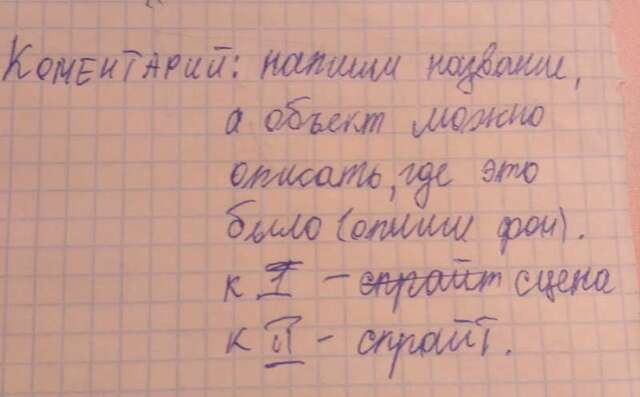 Коментарий: напиши название,
а объект можно
описать, где это
было (опиши фон).
к I – спрайт сцена
к II – спрайт.